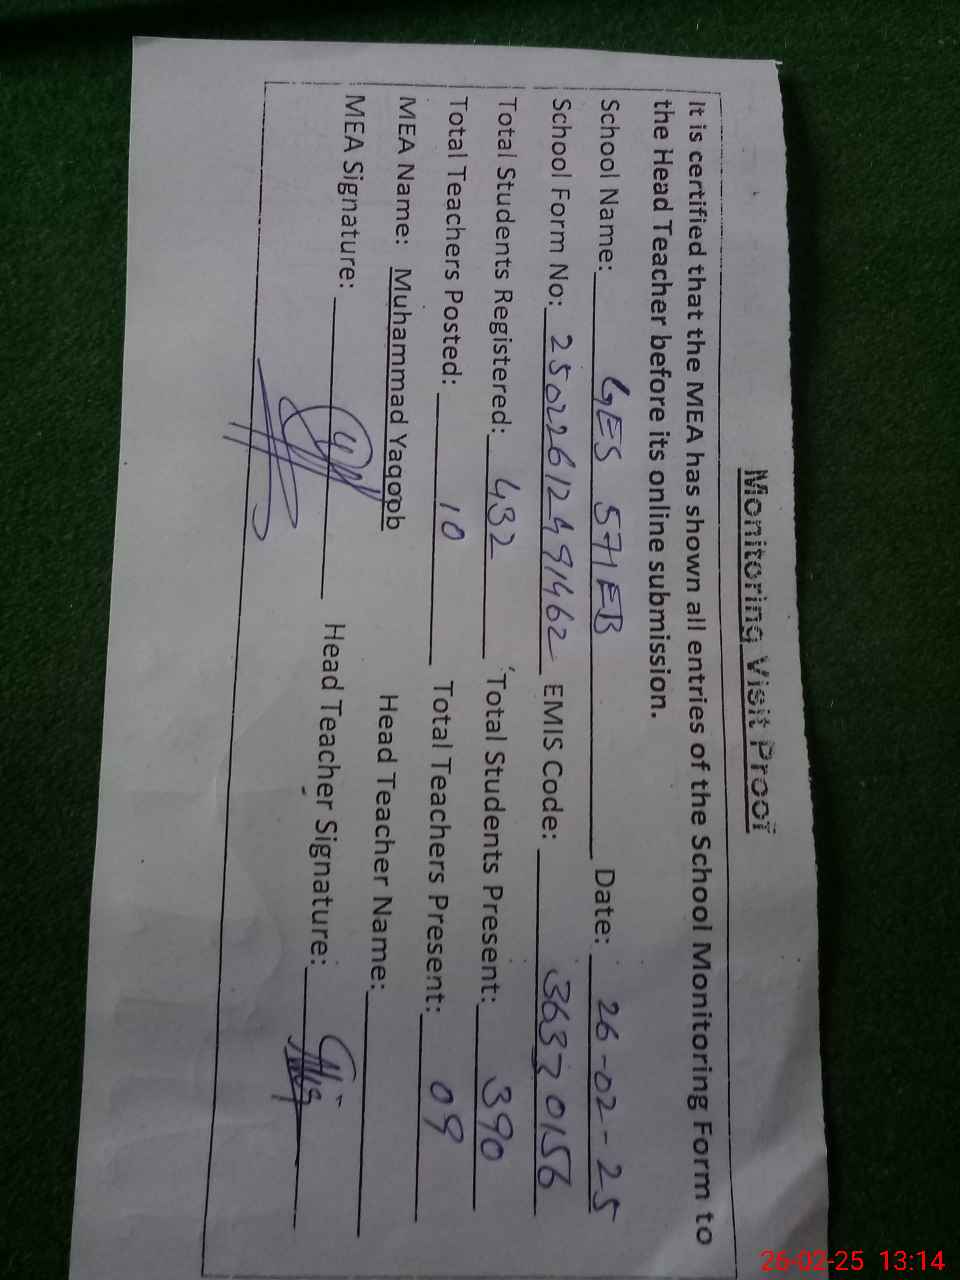 Monitoring Visit Proof
It is certified that the MEA has shown all entries of the School Monitoring Form to
the Head Teacher before its online submission.
School Name: GES 571EB Date: 26-02-25
School Form No: 250226124991462 EMIS Code: 36320156
Total Students Registered: 432 Total Students Present: 390
Total Teachers Posted: 10 Total Teachers Present: 09
MEA Name: Muhammad Yaqoob Head Teacher Name:
MEA Signature: Head Teacher Signature:
26-02-25 13:14